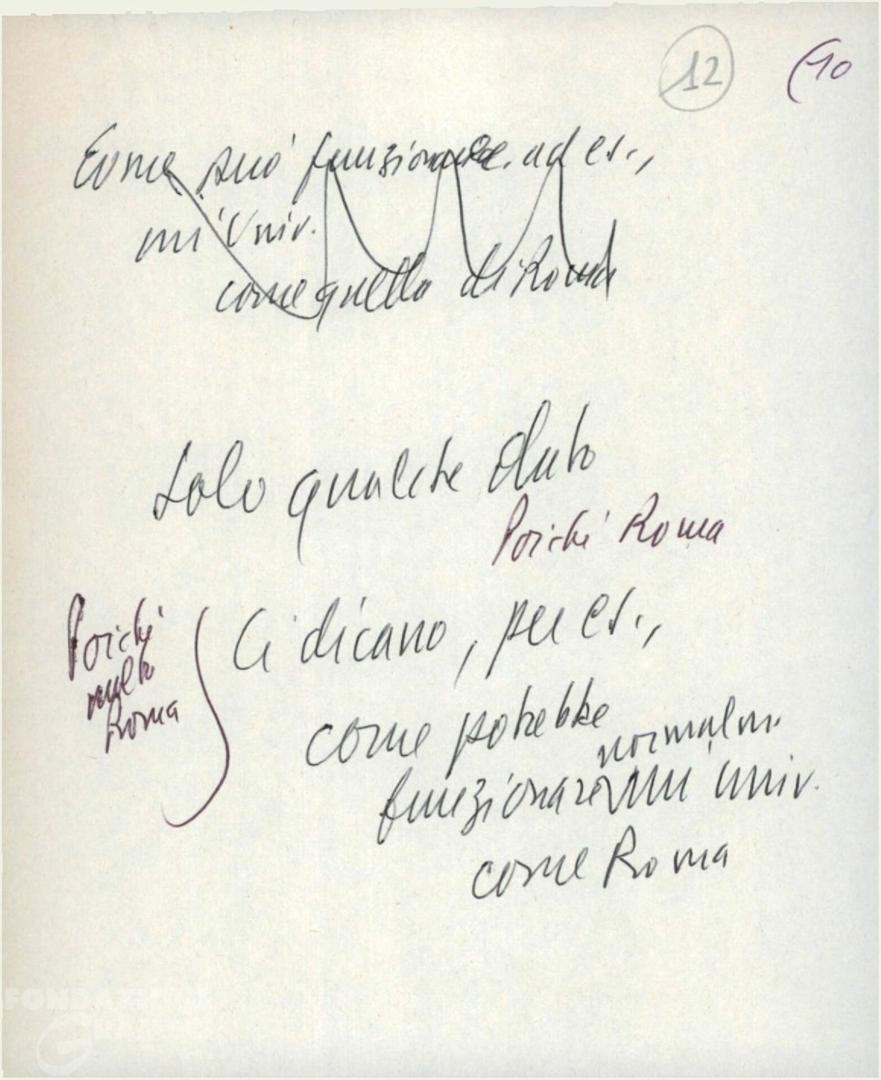 12 (10
Come può funzionare, ad es.,
un'Univ.
come quella di Roma
Solo qualche dato
Poiché Roma
Ci dicano, per es.,
Poiché
Roma
come potrebbe
normalm.
funzionare un'univ.
come Roma
FONDAZIONE